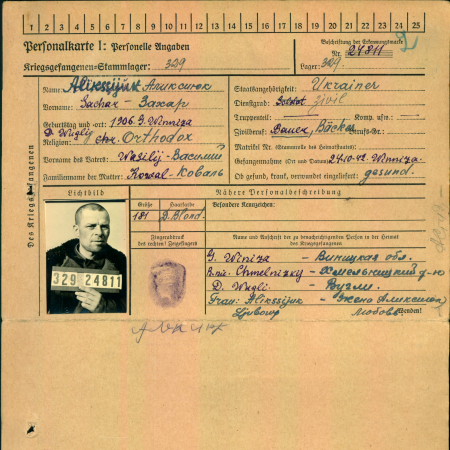 1 2 3 4 5 6 7 8 9 10 11 12 13 14 15 16 17 18 19 20 21 22 23 24 25
Personalkarte I: Personelle Angaben
Kriegsgefangenen-Stammlager: 329
Beschriftung der Erkennungsmarke
Nr. 24811
Lager: 329
Des Kriegsgefangenen
Name: Alikssijuk
Vorname: Sachar - Захар
Geburtstag und -ort: 1906 G. Winniza
D. Wugli
Religion: chr. Orthodox
Vorname des Vaters: Wasilij - Василий
Familienname der Mutter: Kowal - Коваль
Staatsangehörigkeit: Ukrainer
Dienstgrad: Soldat zivil
Truppenteil: — Komp. usw.: —
Zivilberuf: Bauer, Bäcker Berufs-Gr.:
Matrikel Nr. (Stammrolle des Heimatstaates):
Gefangennahme (Ort und Datum): 24.10.42. Winniza.
Ob gesund, krank, verwundet eingeliefert: gesund.
Lichtbild
329 24811
Nähere Personalbeschreibung
Größe
181
Haarfarbe
D. Blond.
Besondere Kennzeichen:
Fingerabdruck
des rechten! Zeigefingers
Name und Anschrift der zu benachrichtigenden Person in der Heimat
des Kriegsgefangenen
G. Winiza - Виницкая обл.
Chmelnizky - Хмельницкий
D. Wugli - Вугли.
Frau: Alikssijuk - Жена
Ljubowy Любовь